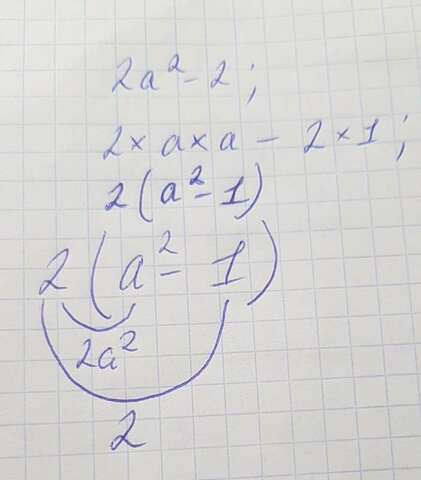 2a² - 2;
2 × a × a - 2 × 1;
2(a² - 1)
2(a² - 1)
2a²
2